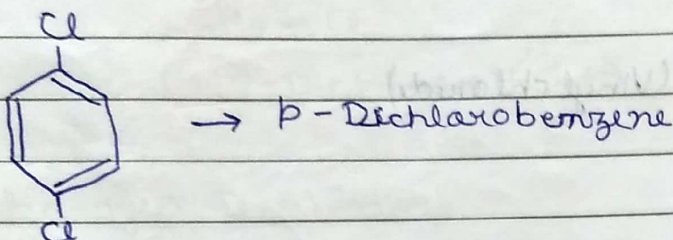 Cl
→ p-Dichlorobenzene
Cl